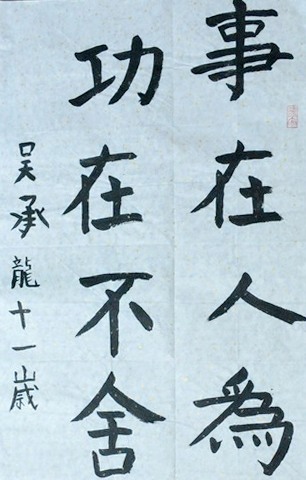 事在人為
功在不舍
吴承龍十一歲